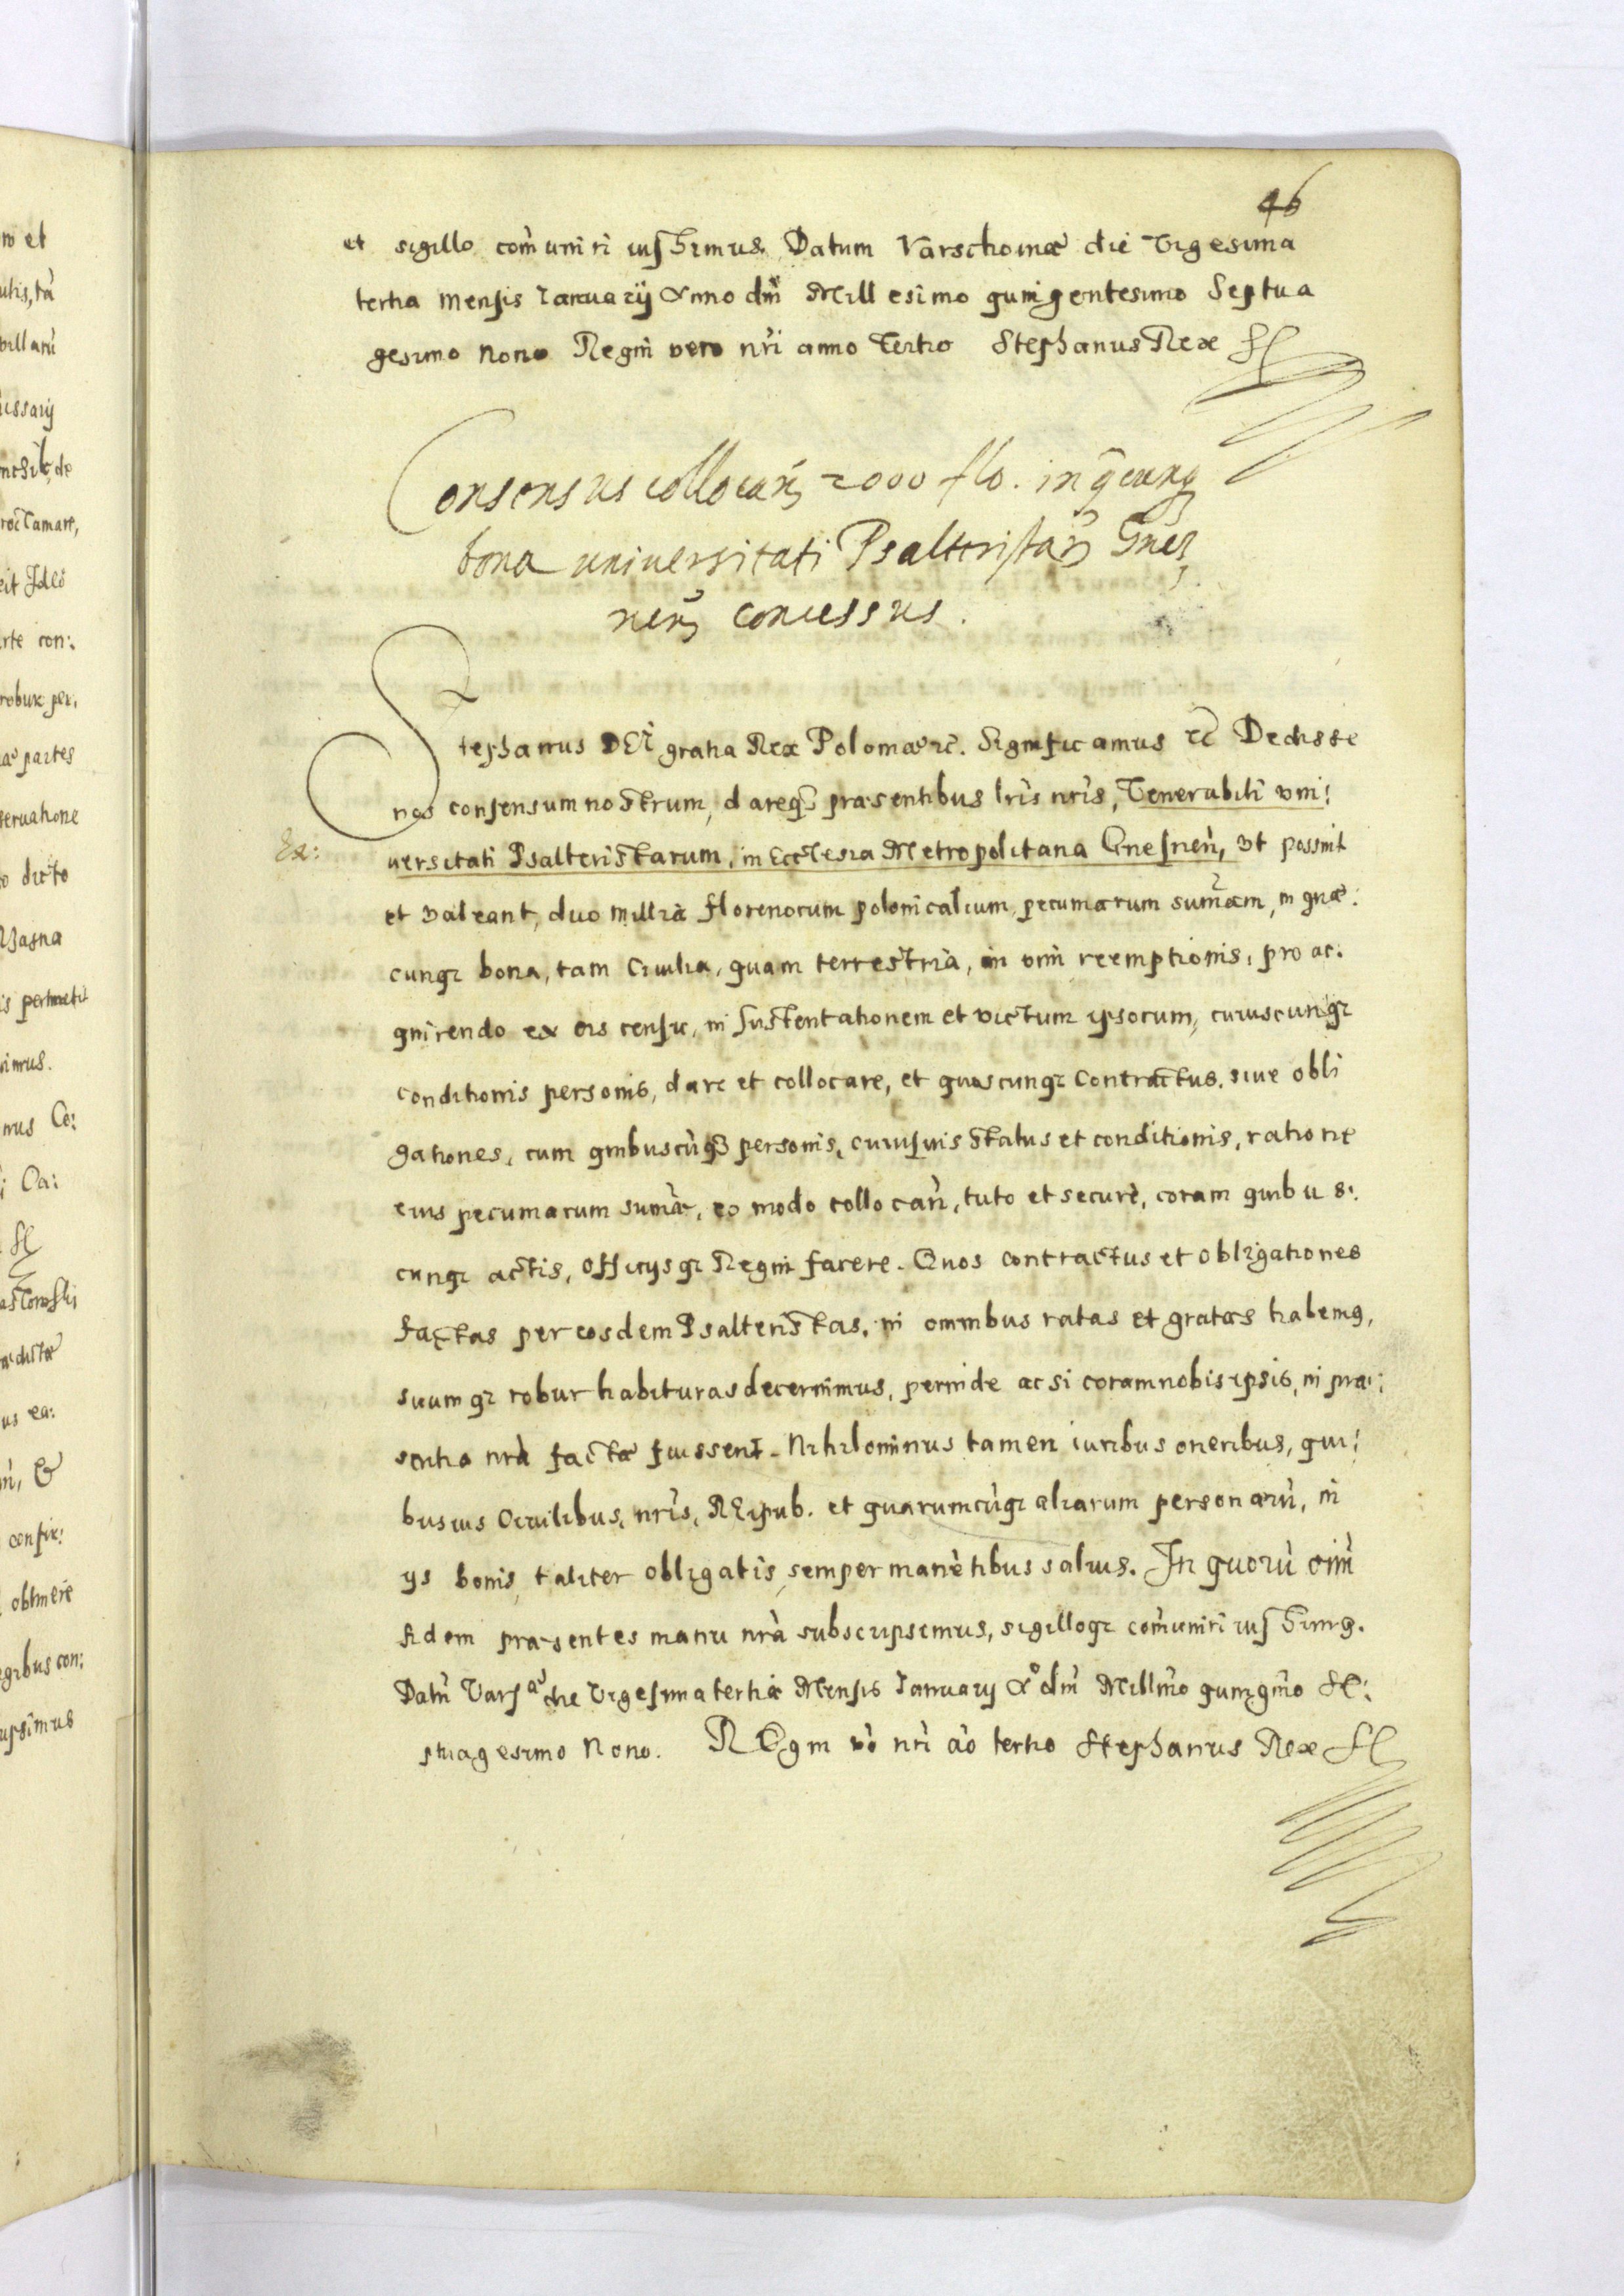 46
et sigillo com̃uniri iussimus. Datum Varschoviæ die Vigesima
tertia Mensis Ianuarij Anno dñi Millesimo quingentesimo Septua
gesimo Nono Regni vero nr̃i anno Tertio Stephanus Rex
Consensus collocan̄ 2000 flo. in q̃cunq
bona universitati Psalteristar̃ Gnez
nen̄ concessus.
Stephanus DEI gratia Rex Poloniæ etc̃. Significamus etc̃ Dedisse
nos consensum nostrum, dareq; præsentibus lr̃is nr̃is, Venerabili vni:
Ex:
uersitati Psalteristarum, in Ecclesia Metropolitana Gnesnen̄, vt possint
et valeant, duo millia florenorum polonicalium, pecuniarum sum̃am, in quæ:
cunq; bona, tam Ciuilia, quam terrestria, in vim reemptionis, pro ac:
quirendo ex eis censu, in sustentationem et victum ipsorum, cuiuscunq;
conditionis personis, dare et collocare, et quoscunq; Contractus, siue obli
gationes, cum quibuscũq; personis, cuiusuis status et conditionis, ratione
eius pecuniarum sum̃æ, eo modo collocan̄, tuto et securè, coram quibus:
cunq; actis, officijsq; Regni facere. Quos contractus et obligationes
factas per eosdem Psalteristas, in omnibus ratas et gratas habemq,
suumq; robur habituras decernimus, perinde ac si coram nobis ipsis, in præ:
sentia nr̃a factæ fuissent. Nihilominus tamen iuribus oneribus, qui:
busuis Ciuilibus, nr̃is, REipub. et quarumcũq; aliarum personarũ, in
ijs bonis, taliter obligatis, semper manẽtibus saluis. In quorũ oim̃
fidem præsentes manu nr̃a subscripsimus, sigilloq; com̃uniri iussimq.
Datũ Varsæ die Vigesima tertia Mensis Ianuarij Aº dñi Millm̃o quingm̃o Se:
ptuagesimo Nono. REgni vò nr̃i aõ tertio Stephanus Rex